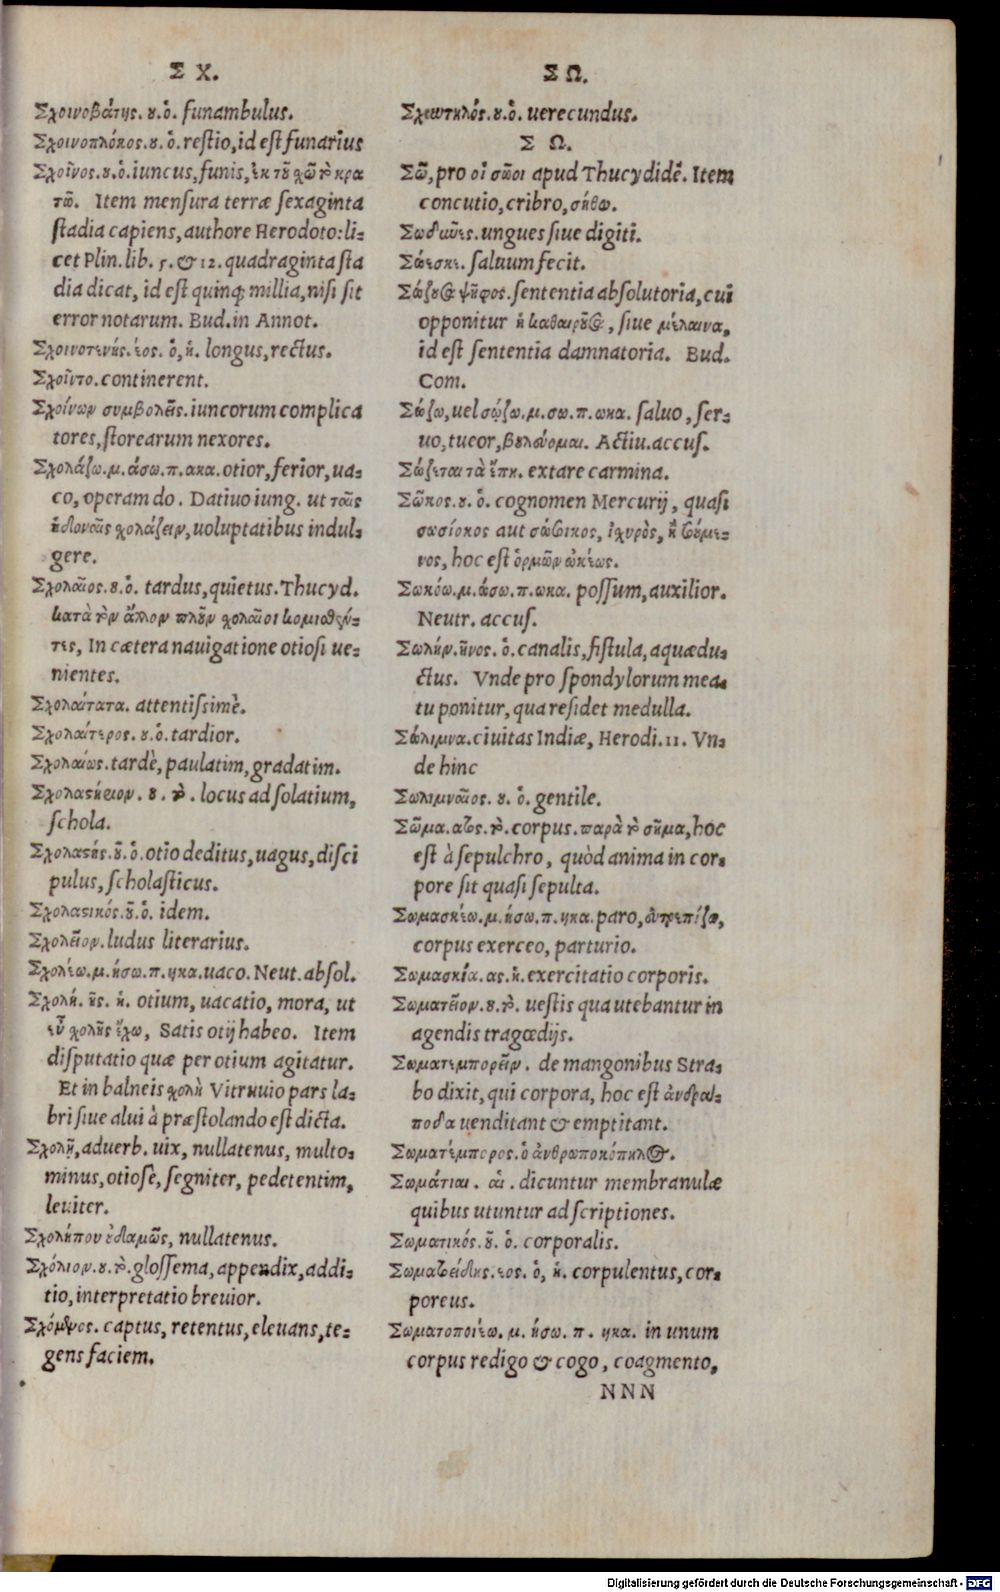 Σ Χ.
Σχοινοβάτης. ου. ὁ. funambulus.
Σχοινοπλόκος. ου. ὁ. restio, id est funarius
Σχοῖνος. ου. ὁ. iuncus, funis, ἐκ τοῦ χῶ τὸ κρα
τῶ. Item mensura terræ sexaginta
stadia capiens, authore Herodoto: li-
cet Plin. lib. 5. & 12. quadraginta sta
dia dicat, id est quinq; millia, nisi sit
error notarum. Bud. in Annot.
Σχοινοτενής. έος. ὁ, ἡ. longus, rectus.
Σχοῖντο. continerent.
Σχοίνων συμβολεῖς. iuncorum complica
tores, storearum nexores.
Σχολάζω. μ. άσω. π. ακα. otior, ferior, ua-
co, operam do. Datiuo iung. ut ταῖς
ἡδοναῖς χολάζειν, uoluptatibus indul-
gere.
Σχολαῖος. ου. ὁ. tardus, quietus. Thucyd.
κατὰ τὸν ἄλλον πλοῦν χολαῖοι κομισθέν-
τες, In cætera nauigatione otiosi ue-
nientes.
Σχολαίτατα. attentissimè.
Σχολαίτερος. ου. ὁ. tardior.
Σχολαίως. tardè, paulatim, gradatim.
Σχολαστήριον. ου. τὸ. locus ad solatium,
schola.
Σχολαστής. οῦ. ὁ. otio deditus, uagus, disci
pulus, scholasticus.
Σχολαστικός. οῦ. ὁ. idem.
Σχολεῖον. ludus literarius.
Σχολέω. μ. ήσω. π. ηκα. uaco. Neut. absol.
Σχολή. ῆς. ἡ. otium, uacatio, mora, ut
εὖ χολῆς ἔχω, Satis otij habeo. Item
disputatio quæ per otium agitatur.
Et in balneis χολὴ Vitruuio pars la-
bri siue alui à præstolando est dicta.
Σχολῇ, aduerb. uix, nullatenus, multo-
minus, otiosè, segniter, pedetentim,
leuiter.
Σχολήπου οὐδαμῶς, nullatenus.
Σχόλιον. ου. τὸ. glossema, appendix, addi-
tio, interpretatio breuior.
Σχόμενος. captus, retentus, eleuans, te-
gens faciem.
Σ Ω.
uerecundus.
Σ Ω.
Σῶ, pro οἱ σῶοι apud Thucydidē. Item
concutio, cribro, σήθω.
ungues siue digiti.
Σώεσκε. saluum fecit.
Σώζουσα ψῆφος. sententia absolutoria, cui
opponitur ἡ καθαιροῦσα, siue μέλαινα,
id est sententia damnatoria. Bud.
Com.
Σώζω, uel σῴζω. μ. σω. π. ωκα. saluo, ser-
uo, tueor, βουλεύομαι. Actiu. accus.
Σώζεται τὰ ἔπη. extare carmina.
Σῶκος. ου. ὁ. cognomen Mercurij, quasi
σωσίοικος aut σώοικος, ἰχυρὸς, ἢ σούμε-
νος, hoc est ὁρμῶν ὠκέως.
Σωκόω. μ. ώσω. π. ωκα. possum, auxilior.
Neutr. accus.
Σωλήν. ῆνος. ὁ. canalis, fistula, aquædu-
ctus. Vnde pro spondylorum mea-
tu ponitur, qua residet medulla.
Σώλιμνα. ciuitas Indiæ, Herodi. 11. Vn-
de hinc
Σωλιμναῖος. ου. ὁ. gentile.
Σῶμα. ατος. τὸ. corpus. παρὰ τὸ σῆμα, hoc
est à sepulchro, quòd anima in cor-
pore sit quasi sepulta.
Σωμασκέω. μ. ήσω. π. ηκα. paro, εὐτρεπίζω,
corpus exerceo, parturio.
Σωμασκία. ας. ἡ. exercitatio corporis.
Σωματεῖον. ου. τὸ. uestis qua utebantur in
agendis tragœdijs.
Σωματεμπορεῖν. de mangonibus Stra-
bo dixit, qui corpora, hoc est ἀνδρά-
ποδα uenditant & emptitant.
Σωματέμπορος. ὁ ἀνθρωποκάπηλος.
Σωμάτιαι. αἱ. dicuntur membranulæ
quibus utuntur ad scriptiones.
Σωματικός. οῦ. ὁ. corporalis.
Σωματοείδης. εος. ὁ, ἡ. corpulentus, cor-
poreus.
Σωματοποιέω. μ. ήσω. π. ηκα. in unum
corpus redigo & cogo, coagmento,
NNN
Digitalisierung gefördert durch die Deutsche Forschungsgemeinschaft - DFG